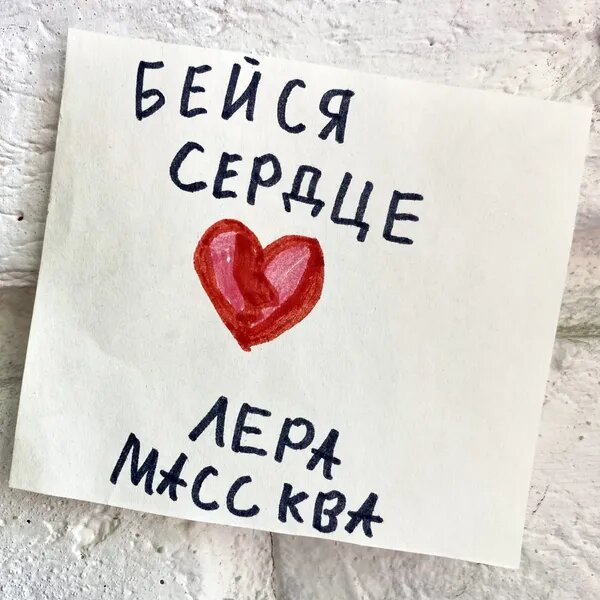 БЕЙСЯ
СЕРДЦЕ
ЛЕРА
МАССКВА